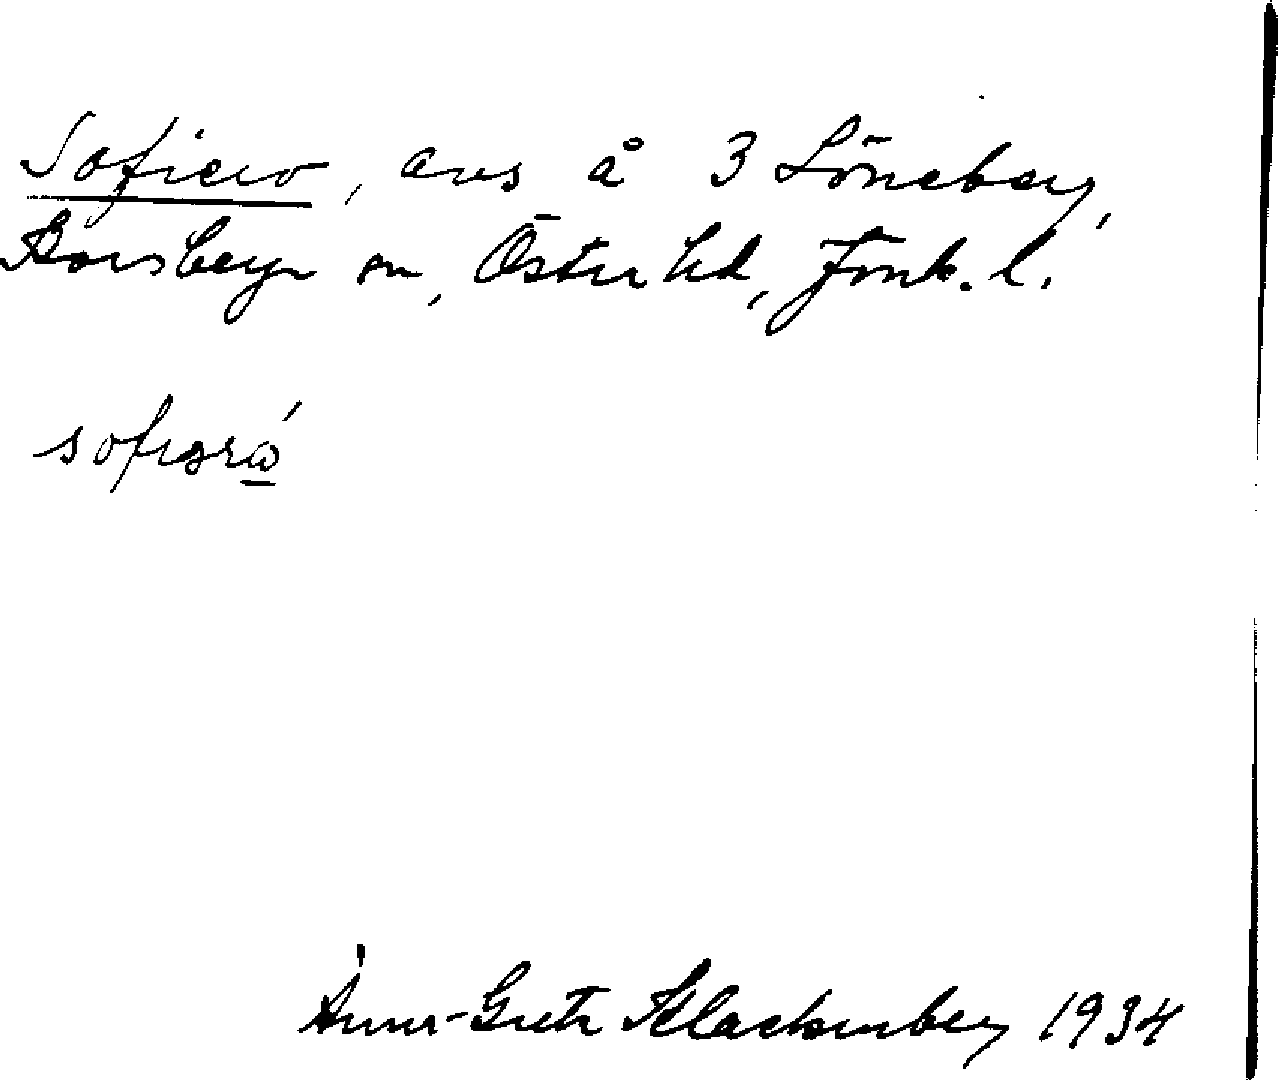 Sofiero, avs å 3 Löneberg,
Korsberga sn, Östra hd, Jönk. l.
sofiərώ
Anna-Greta Klackenberg 1934